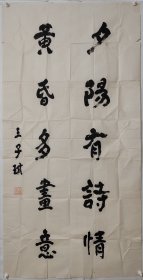 夕陽有詩情
黄昏多畫意
王子武